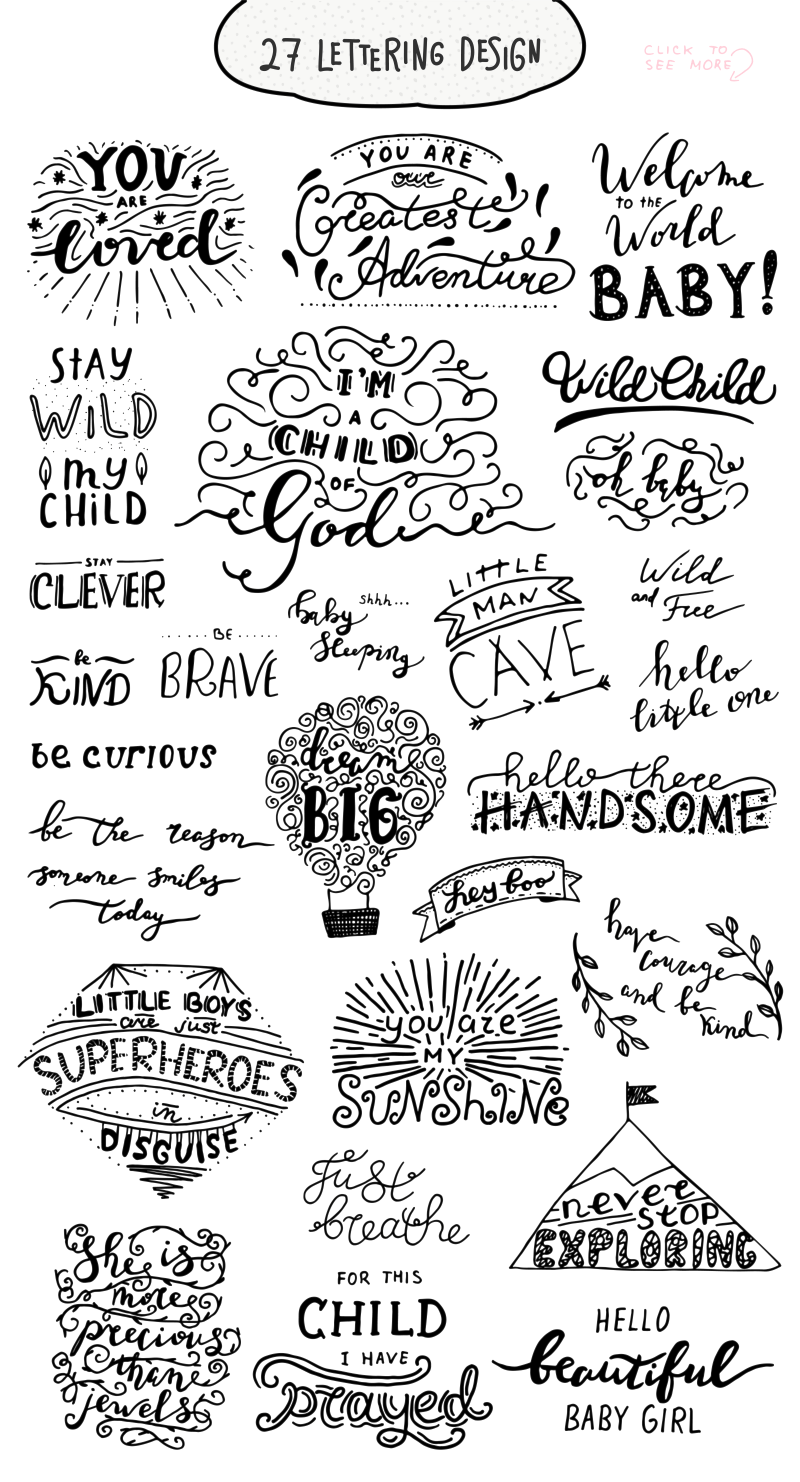 27 LETTERING DESIGN
CLICK TO
SEE MORE
YOU
ARE
loved
YOU ARE
our
Greatest
Adventure
Welcome
to the
World
BABY!
STAY
WILD
my
CHiLD
I'M
A
CHILD
OF
God
Wild Child
oh baby
STAY
CLEVER
baby shhh...
sleeping
LITTLE
MAN
CAVE
Wild
and Free
be
KIND
BE
BRAVE
hello
little one
be curious
dream
BIG
hello there
HANDSOME
be the reason
someone smiles
today
hey boo
have
courage
and be
kind
LITTLE BOYS
are just
SUPERHEROES
in
DISGUISE
you are
MY
SUNShINe
Just
breathe
never
STOP
EXPLORING
She is
more
precious
than
jewels
FOR THIS
CHILD
I HAVE
prayed
HELLO
beautiful
BABY GIRL